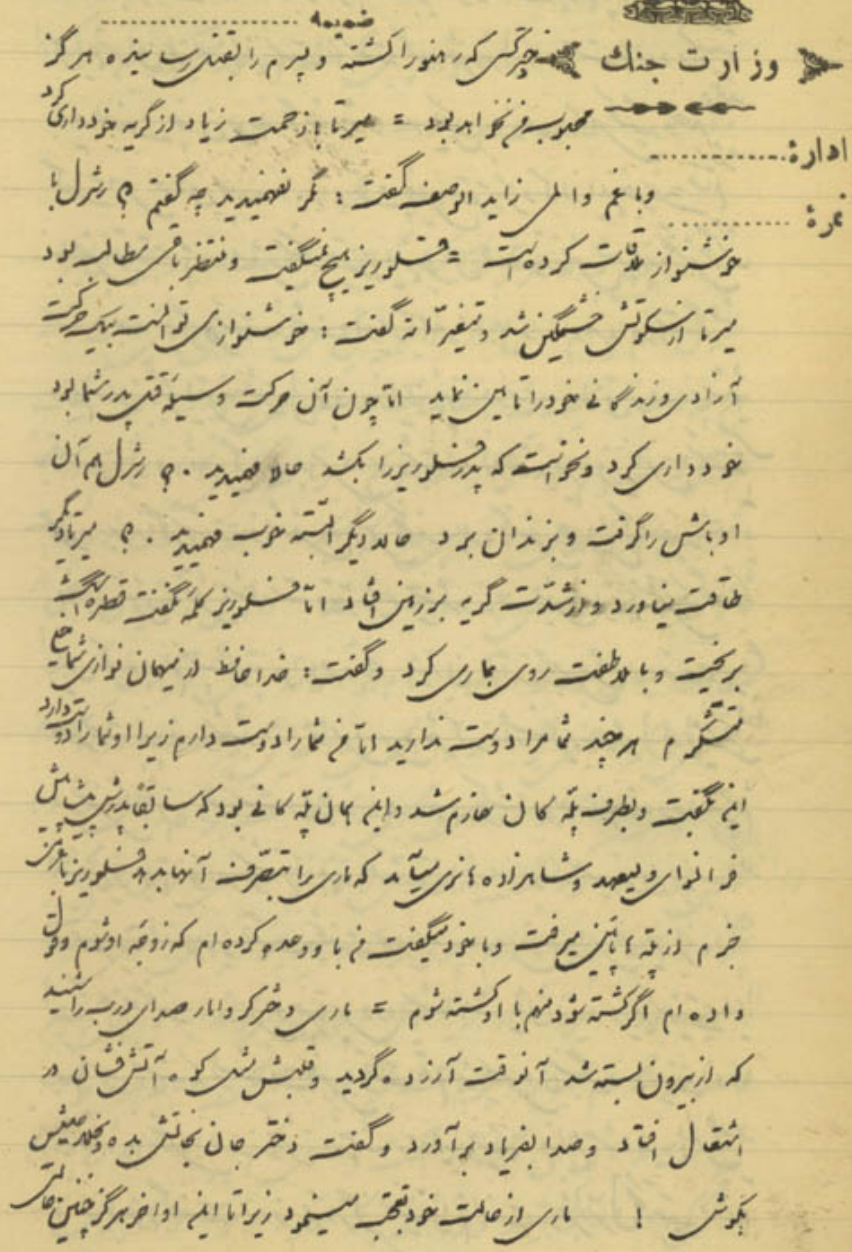 ضمیمه ..............
وزارت جنگ
ادارهٔ ..............
نمرهٔ ..............
که شوهر را کشته و پسرم را بقتل رسانیده هرگز
محبوب من نخواهد بود = میرتا با زحمت زیاد از گریه خودداری کرد
و با غم و المی زاید الوصف گفت : مگر نفهمیدید چه گفتم ؟ رنژل با
خوشنواز ملاقات کرده است = فلوریز هیچ نمیگفت و منتظر باقی مطالب بود
میرتا از سکوتش خشمگین شد و متغیرانه گفت : خوشنواز می توانست بیک حرکت
آزادی و زندگانی خود را تامین نماید اما چون آن حرکت وسیله قتل پدر شما بود
خودداری کرد و نخواست که پدر فلوریز را بکشد حالا فهمیدید . ؟ رنژل هم آن
اوباش را گرفت و بزندان برد حالا دیگر البته خوب فهمیدید . ؟ میرتا دیگر
طاقت نیاورد و از شدت گریه بر زمین افتاد اما فلوریز کلمه نگفت قطره اشک
بریخت و با ملاطفت روی بماری کرد و گفت : خدا حافظ از میهمان نوازی شما
متشکرم هر چند شما مرا دوست ندارید اما من شما را دوست دارم زیرا او شما را دوست دارد
این بگفت و بطرف پله کان عازم شد و این همان پله کانی بود که سابقا پدرش
ولیعهد و شاهزاده هانری میآمد که ماری را بتصرف آنها بدهد فلوریز با
از پله ها پائین میرفت و با خود میگفت من باو وعده کرده ام که زوجه او شوم و قول
داده ام اگر کشته شود منهم با او کشته شوم = ماری دختر کروامار صدای درب را شنید
که از بیرون بسته شد آنوقت آرزده گردید و قلبش مثل کوه آتش فشان در
اشتعال افتاد و صدا بفریاد برآورد و گفت دختر جان نجاتش بده و
بکوش ! ماری از حالت خود تعجب مینمود زیرا تا این اواخر هرگز چنین حالتی